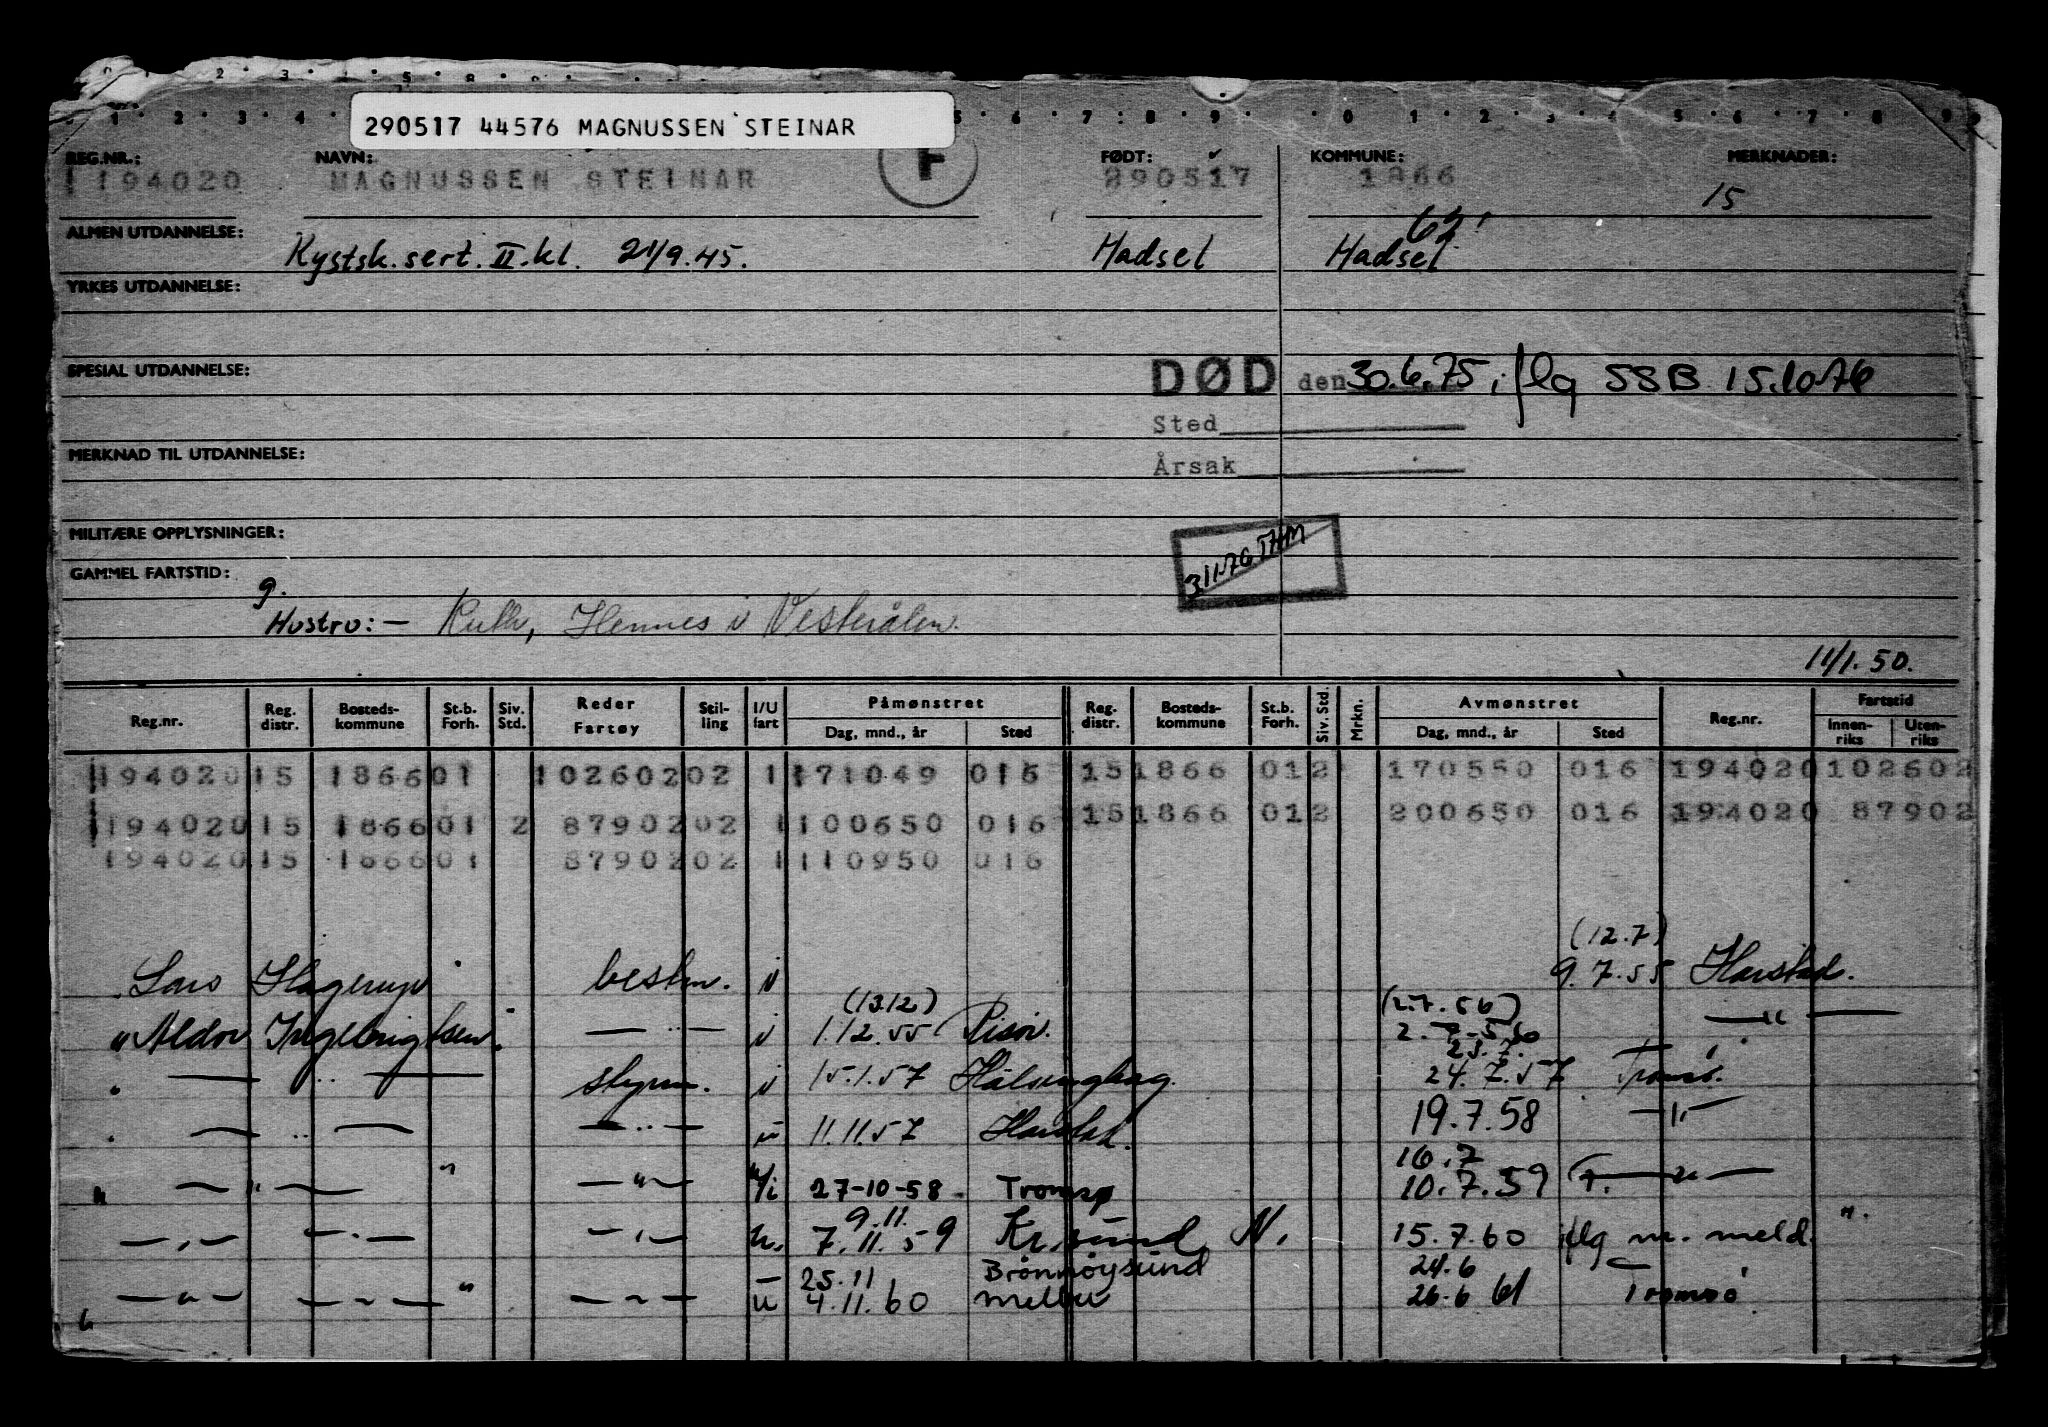 290517 44576 MAGNUSSEN STEINAR
REG.NR.: NAVN: F FØDT: KOMMUNE: MERKNADER:
194020 MAGNUSSEN STEINAR 290517 1866 15
ALMEN UTDANNELSE: Kystsk. sert. II. kl. 21/9.45. Hadsel Hadsel
YRKES UTDANNELSE:
SPESIAL UTDANNELSE: DØD den 30.6.75, iflg SSB 15.10.76
Sted
MERKNAD TIL UTDANNELSE: Årsak
MILITÆRE OPPLYSNINGER:
GAMMEL FARTSTID:
g.
Hustru: – Ruth, Hennes i Vesterålen.
11/1.50.
Reg.nr. Reg. distr. Bosteds-kommune St.b. Forh. Siv. Std. Reder Fartøy Stil-ling I/U fart Påmønstret Dag, mnd., år Sted Reg. distr. Bosteds-kommune St.b. Forh. Siv. Std. Mrkn. Avmønstret Dag, mnd., år Sted Reg.nr. Fartstid Innen-riks Uten-riks
194020 15 1866 01 102602 02 1 171049 016 15 1866 012 170550 016 194020 102602
194020 15 1866 01 2 87902 02 1 100650 016 15 1866 012 200650 016 194020 87902
194020 15 1866 01 87902 02 1 110950 016
(12.7)
Lars Hagerup bestm. i 9.7.55 Harstad.
(13.12) (2.7.56)
" Aldor Ingebrigtsen. — " — i 1.12.55 Risör. — " —
23.7.
" — " — styrm. i 15.1.57 24.7.57 Tromsö.
" — " — — " — u 11.11.57 Harstad. 19.7.58 — " —
16.7
" — " — " — " — u/i 27-10-58. Tromsø 10.7.59 — " —
9.11.
— " — — " — — " — u. 7.11.59 Kr.sund N. 15.7.60 iflg m. meld.
25.11 Brønnøysund 24.6
— " — — " — " — " — u 4.11.60 Melbu 26.6 61 Tromsö